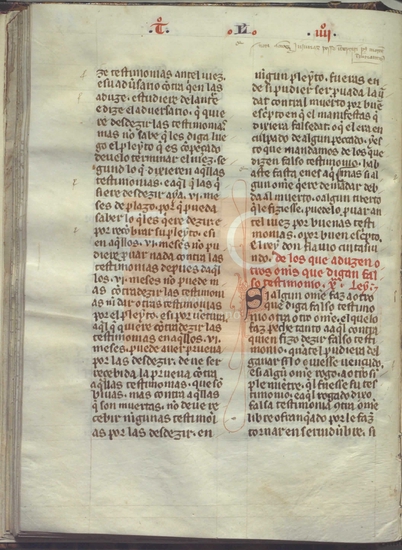 T. L. IIII
ze testimonias antel iuez.
e su aduersario cōtra q̄en las
aduze. estudiere delant e
dize el aduersario. q̄ quie
re desdezir las testimonias
mas no sabe q̄ les diga lue
go el pleyto q̄ es cōpeçado
deuelo terminar el iuez. se
gund lo q̄ dixieren aq̄llas
testimonias. e aq̄l q̄ las q̄
siere desdezir aya. vi. me
ses de plazo. por q̄ pueda
saber lo q̄ les q̄ere dezir e
por recobrar su pleyto. e si
en aq̄llos. vi. meses no pu
diere puar nada contra las
testimonias depues daq̄l
los. vi. meses no puede m
as cōtradezir las testimoni
as ni dar otras testimonias
por el pleyto. e si por uētura
aq̄l q̄ quiere cōtradezir las
testimonias en aq̄llos. vi.
meses. puede auer prueua
por las desdezir. deue ser
recebida la prueua cōtra
aq̄llas testimonias. que sō
biuas. mas contra aq̄llas
q̄ son muertas. no deue re
cebir ningunas testimoni
as por las desdezir. en
ningun pleyto. fueras en
de si pudier ser puada la q̄
dar contral muerto por buē
escripto en q̄ el manifesta q̄
dixiera falsedat. o q̄l era en
culpado de algun pecado. e esto
que mandamos de los que
dizen falso testimonio. fab
asta en aq̄
algun om̄e q̄ere de
da al muerto. o algun tuerto
quel fiziesse. puedelo puar an
tel iuez por buenas testi
monias. o por buen escripto.
el rey don flauio cintasui
indo. de los que aduzen o
tros om̄es que digan fal
so testimonio. Ley.
Si algun om̄e faz a otro
que diga falso testimo
nio contra otro om̄e. el quelo
faz peche tanto a aq̄l contra
quien fizo dezir falso testi
monio. quāto el pudiera del
ganar si lo ouiesse uencido.
e si algun om̄e rogo. a otro si
ple mientre. q̄l fuesse su tes
timonio. e aq̄l rogado dixo
falsa testimonia contra om̄e
libre o franq̄ado por le faz
tornar en seruidūbre. si